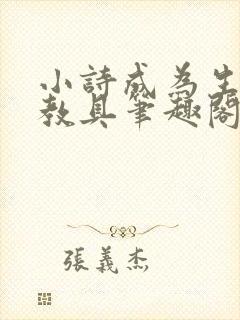 小詩成為生
教具筆趣閣
張義杰